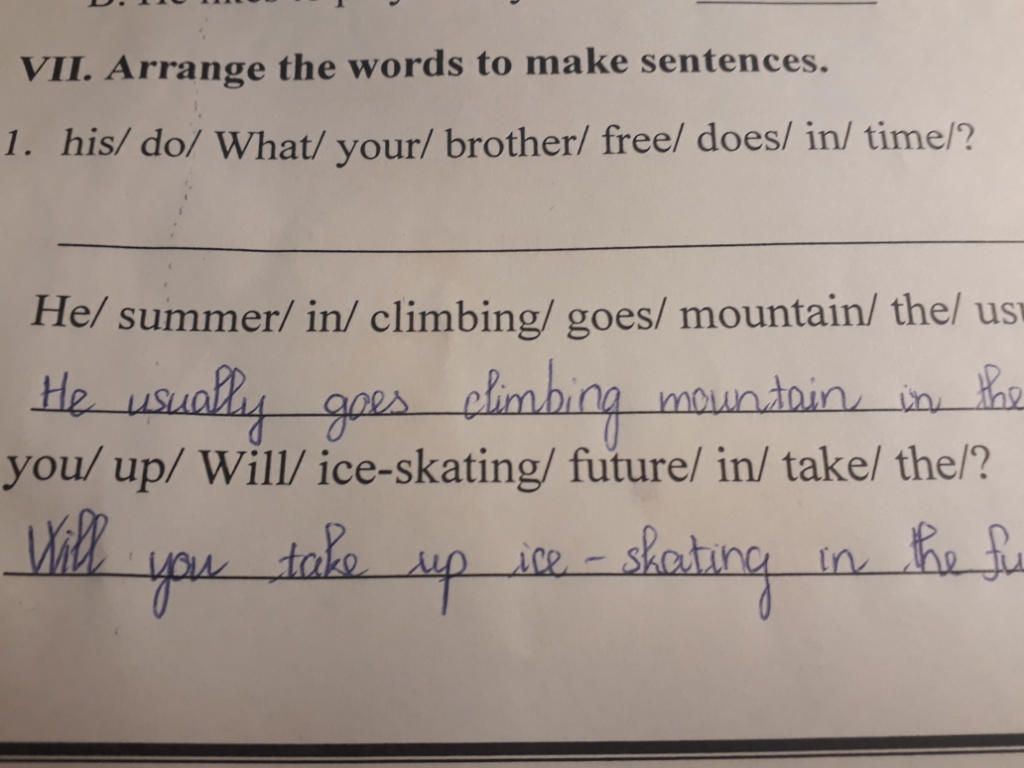 VII. Arrange the words to make sentences.
1. his/ do/ What/ your/ brother/ free/ does/ in/ time/?
He/ summer/ in/ climbing/ goes/ mountain/ the/
He usually goes climbing mountain in the
you/ up/ Will/ ice-skating/ future/ in/ take/ the/?
Will you take up ice-skating in the